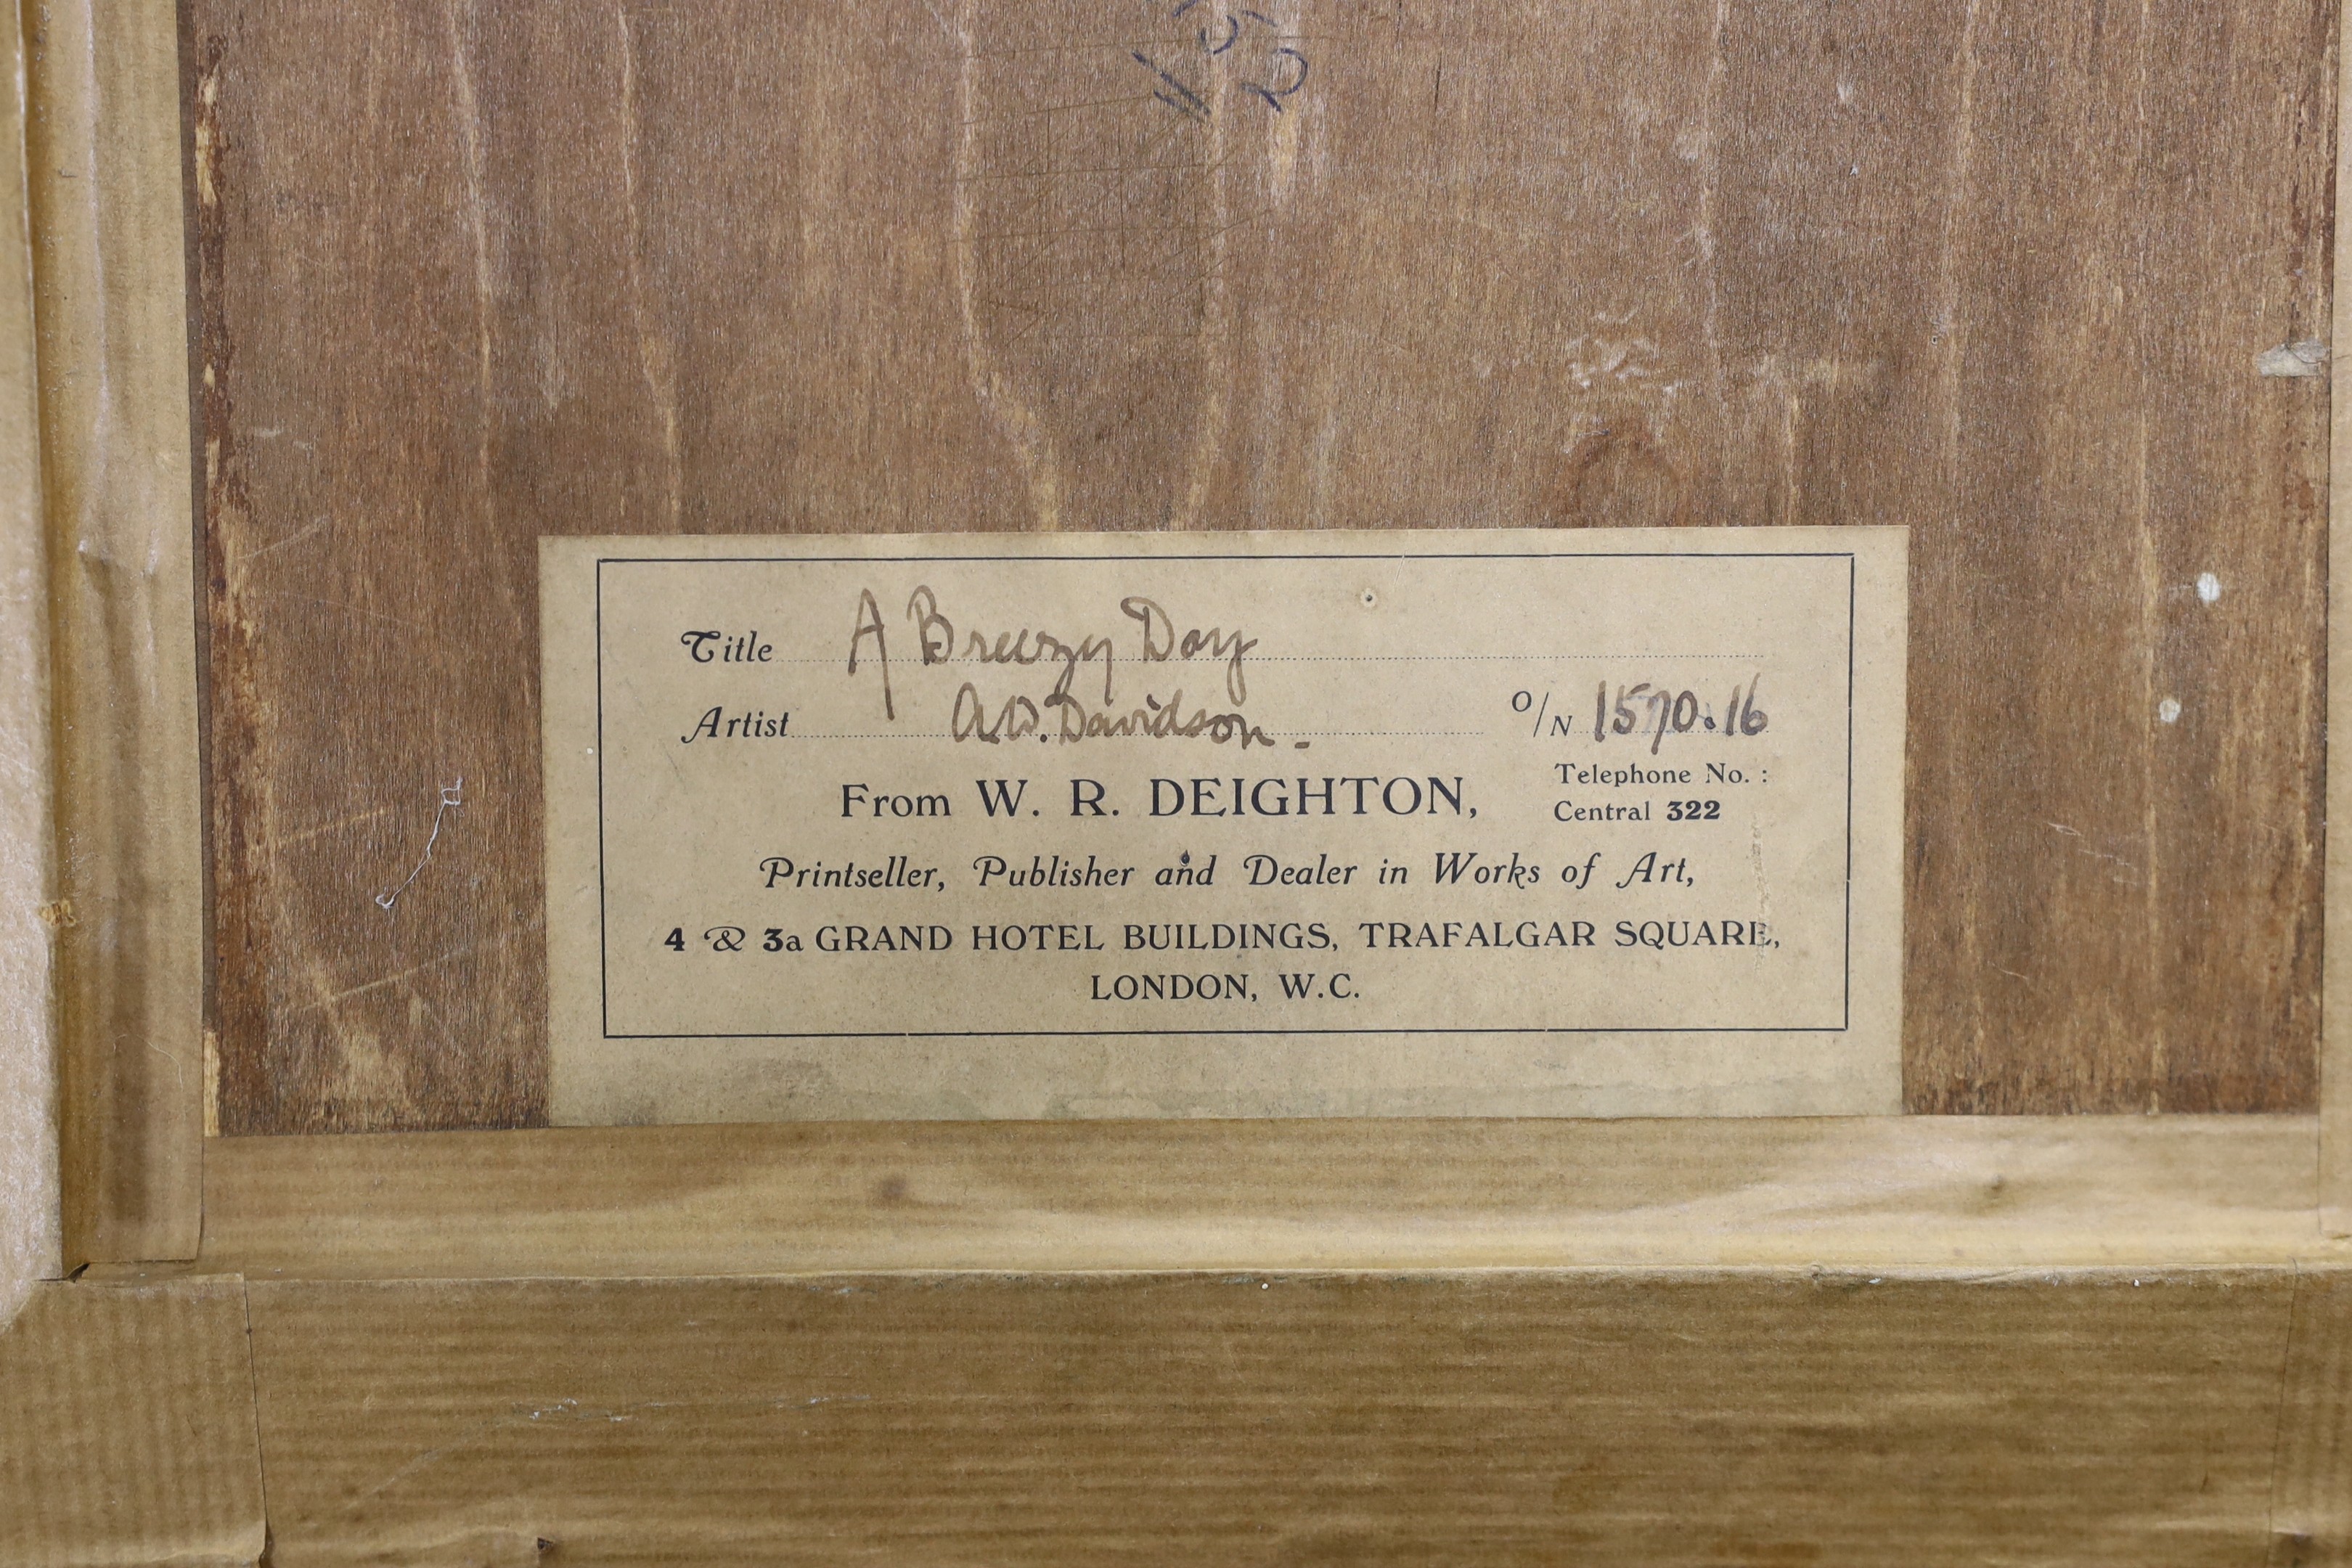 Title A Breezy Day
Artist A.D. Davidson - O/N 1570.16
From W. R. DEIGHTON, Telephone No. :
Central 322
Printseller, Publisher and Dealer in Works of Art,
4 & 3a GRAND HOTEL BUILDINGS, TRAFALGAR SQUARE,
LONDON, W.C.